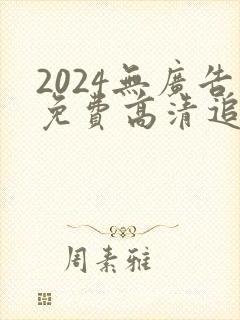 2024無廣告
免費高清追
周素雅